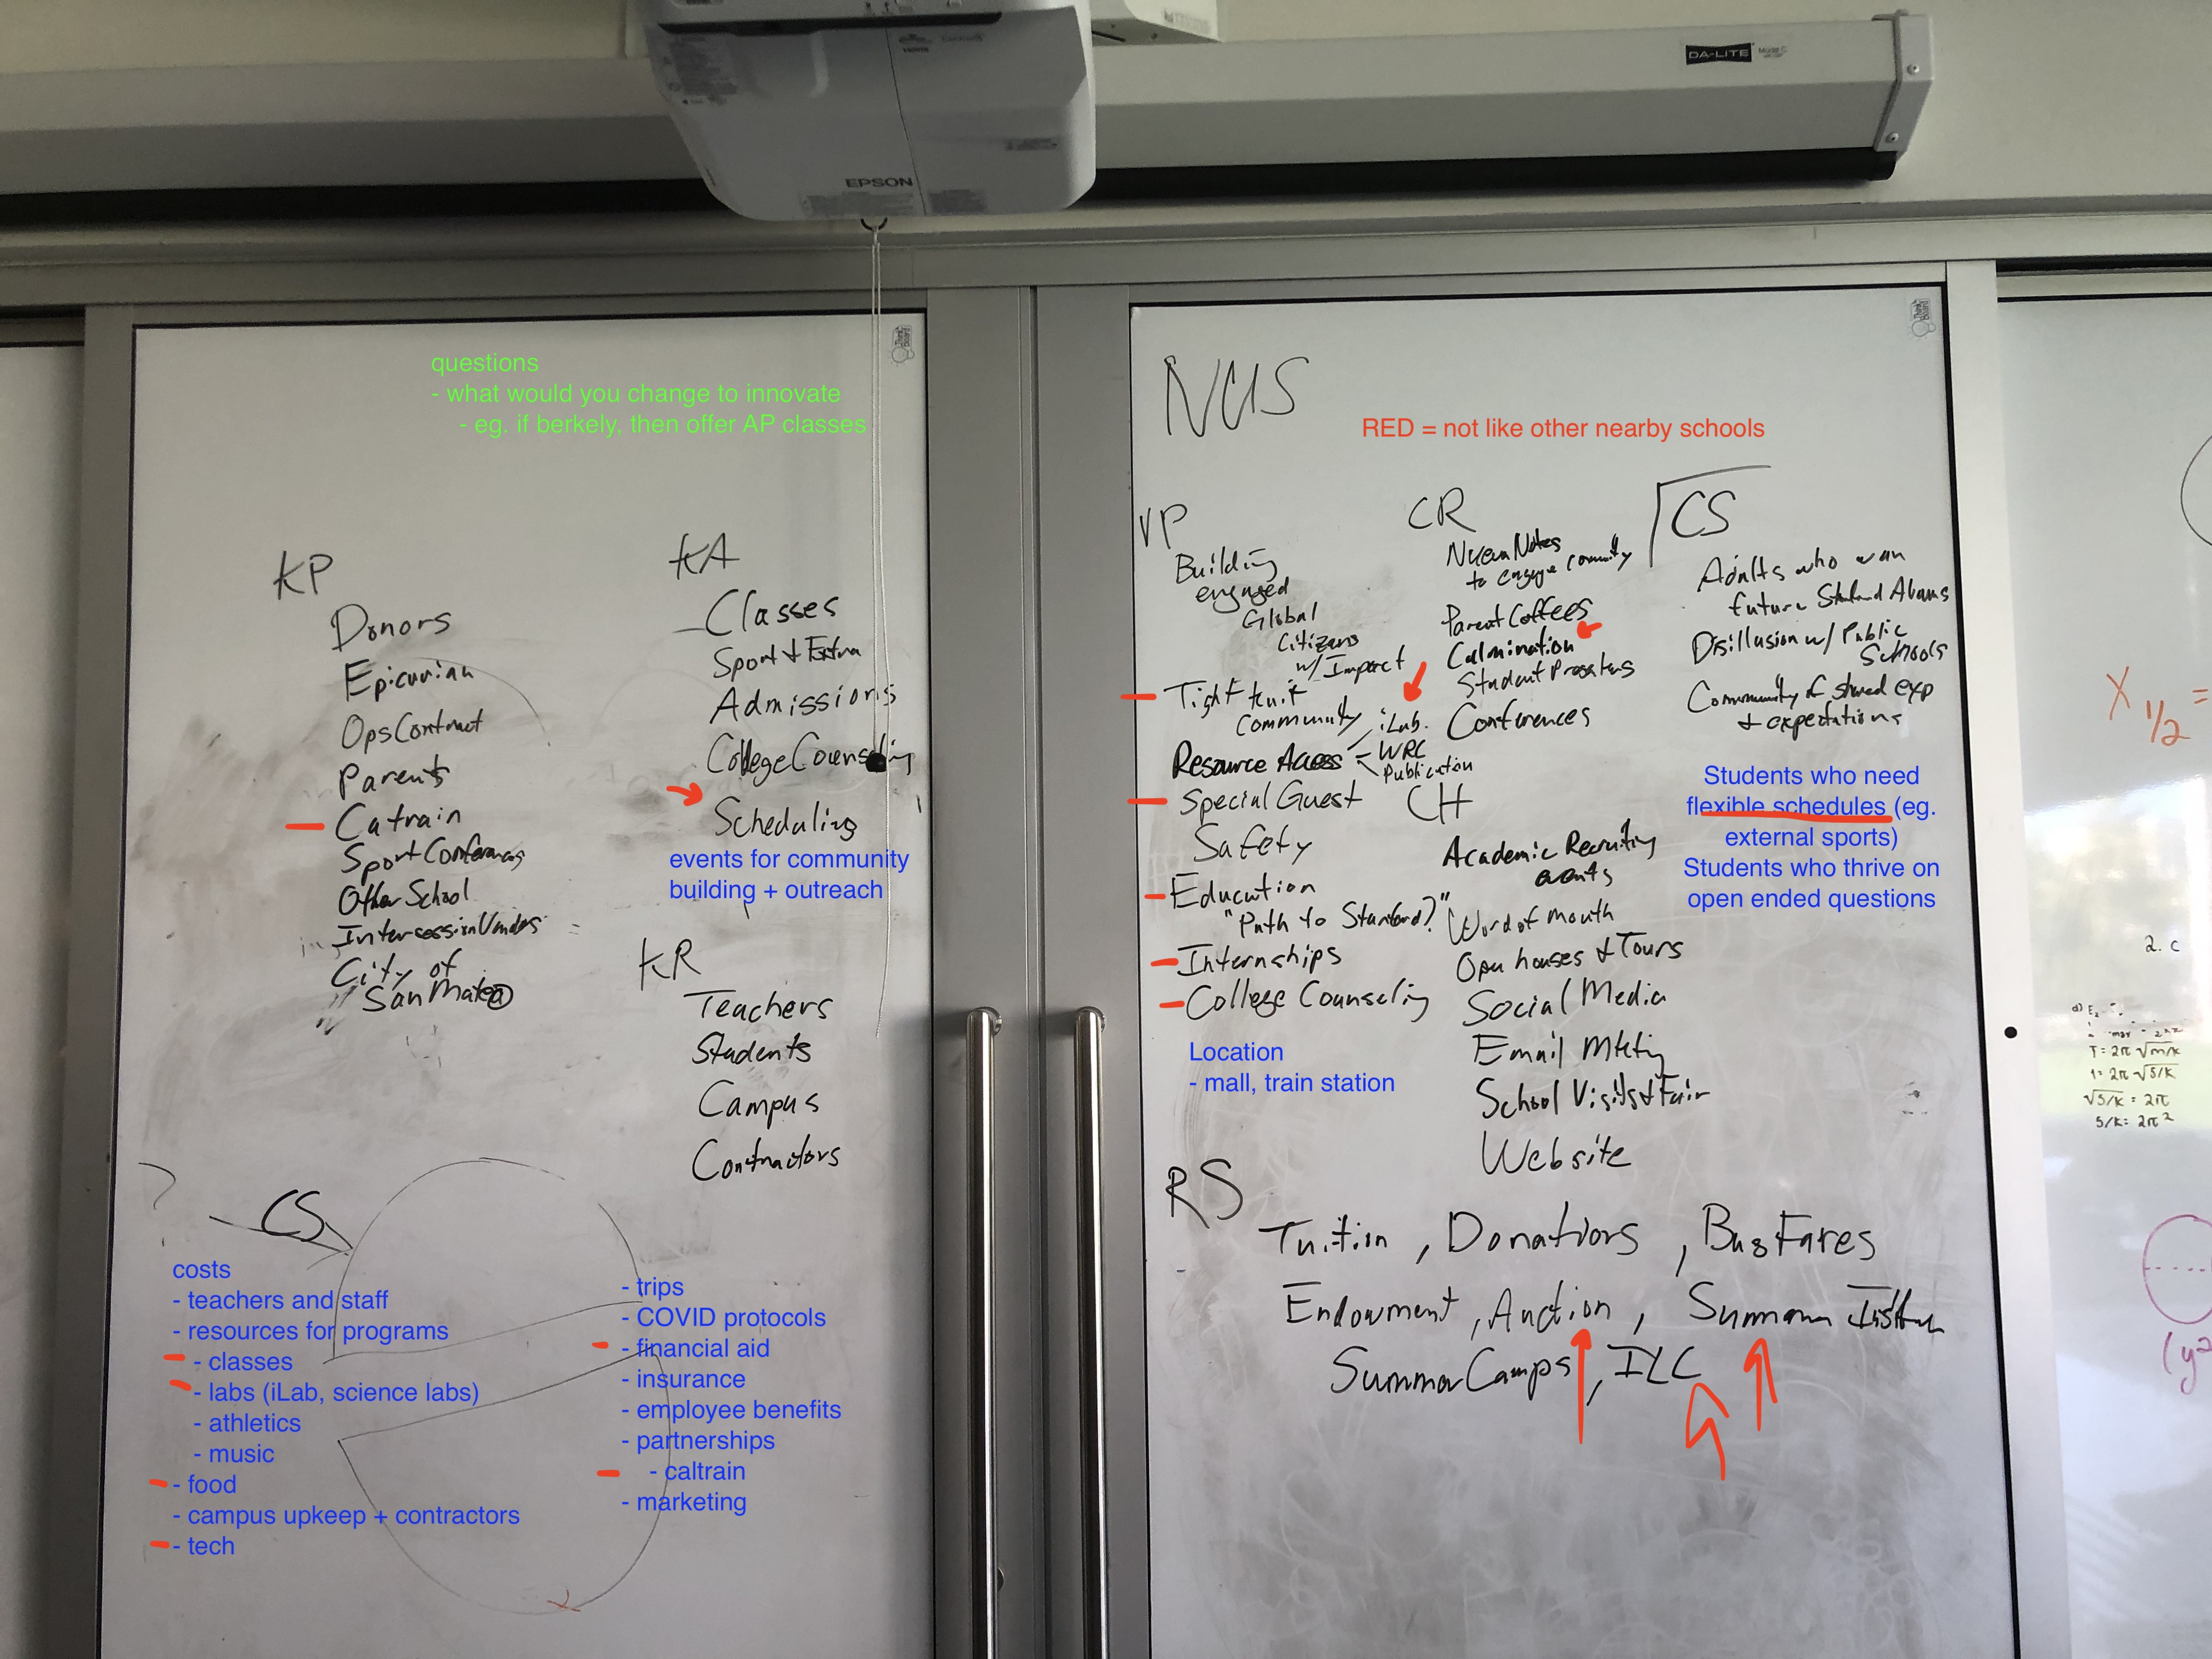 DA-LITE
Model C
EPSON
Think Board
questions
- what would you change to innovate
- eg. if berkely, then offer AP classes
KP
Donors
Epicurian
OpsContract
Parents
Catrain
Sport Conferences
Other School
Intersession Vendors
City of
San Mateo
KA
Classes
Sport & Extra
Admissions
College Counseling
Scheduling
events for community
building + outreach
KR
Teachers
Students
Campus
Contractors
?
CS
costs
- teachers and staff
- resources for programs
- classes
- labs (iLab, science labs)
- athletics
- music
- food
- campus upkeep + contractors
- tech
- trips
- COVID protocols
- financial aid
- insurance
- employee benefits
- partnerships
- caltrain
- marketing
Think Board
NUS
RED = not like other nearby schools
VP
Building
engaged
Global
Citizens
w/ Impact
Tight knit
Community
Resource Access
iLab.
WRC
Publication
Special Guest
Safety
Education
"Path to Stanford?"
Internships
College Counseling
Location
- mall, train station
CR
Nueva Notes
to engage community
Parent Coffees
Culmination
Student
Conferences
CH
Academic Recruiting
events
Word of mouth
Open houses & Tours
Social Media
Email Mktg
School Visits & Fair
Website
CS
Adults who wan
future Stanford Alums
Disillusion w/ Public
Schools
Community of shared exp
& expectations
Students who need
flexible schedules (eg.
external sports)
Students who thrive on
open ended questions
RS
Tuition, Donations, Bus Fares
Endowment, Auction, Summer
Summer Camps, ILC
X 1/2 =
2. c
T = 2π √m/k
1 = 2π √5/k
√5/k = 2π
5/k = 2π²
(y²